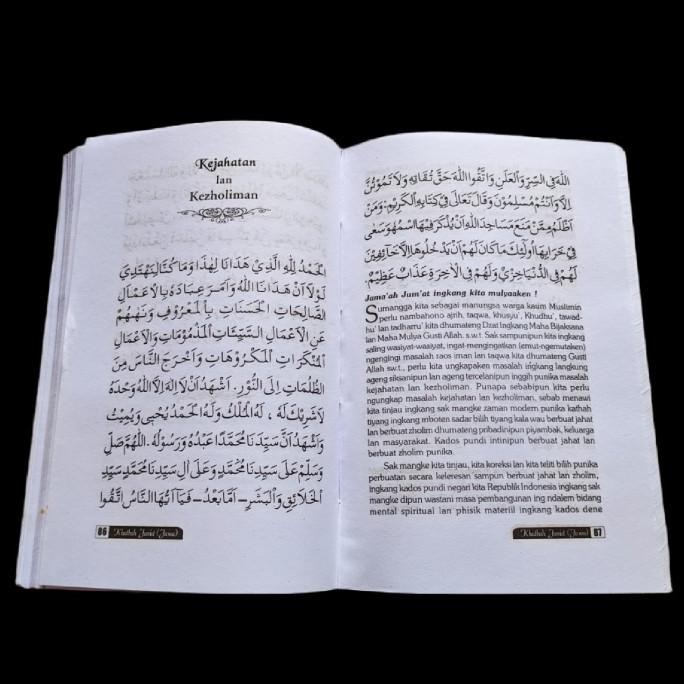 Kejahatan
lan
Kezholiman
اَلْحَمْدُ لِلّٰهِ الَّذِيْ هَدَانَا لِهٰذَا وَمَا كُنَّا لِنَهْتَدِيَ
لَوْلَا اَنْ هَدَانَا اللّٰهُ وَاَمَرَ عِبَادَهُ بِالْاَعْمَالِ
الصَّالِحَاتِ الْحَسَنَاتِ بِالْمَعْرُوْفِ وَنَهٰهُمْ
عَنِ الْاَعْمَالِ السَّيِّئَاتِ الْمَذْمُوْمَاتِ وَالْاَعْمَالِ
الْمُنْكَرَاتِ الْمَكْرُوْهَاتِ وَاَخْرَجَ النَّاسَ مِنَ
الظُّلُمَاتِ اِلَى النُّوْرِ. اَشْهَدُ اَنْ لَا اِلٰهَ اِلَّا اللّٰهُ وَحْدَهُ
لَا شَرِيْكَ لَهُ ، لَهُ الْمُلْكُ وَلَهُ الْحَمْدُ يُحْيِى وَيُمِيْتُ
وَاَشْهَدُ اَنَّ سَيِّدَنَا مُحَمَّدًا عَبْدُهُ وَرَسُوْلُهُ. اَللّٰهُمَّ صَلِّ
وَسَلِّمْ عَلَى سَيِّدِنَا مُحَمَّدٍ وَعَلَى اٰلِ سَيِّدِنَا مُحَمَّدٍ سَيِّدِ
الْخَلَائِقِ وَالْبَشَرِ – اَمَّا بَعْدُ – فَيَا اَيُّهَا النَّاسُ اتَّقُوا
86 Khutbah Jum'at (Jawa)
اللّٰهَ فِي السِّرِّ وَالْعَلَنِ وَاتَّقُوا اللّٰهَ حَقَّ تُقَاتِهِ وَلَا تَمُوْتُنَّ
اِلَّا وَاَنْتُمْ مُسْلِمُوْنَ وَقَالَ تَعَالَى فِيْ كِتَابِهِ الْكَرِيْمِ: وَمَنْ
اَظْلَمُ مِمَّنْ مَنَعَ مَسَاجِدَ اللّٰهِ اَنْ يُذْكَرَ فِيْهَا اسْمُهُ وَسَعَى
فِيْ خَرَابِهَا اُولٰئِكَ مَا كَانَ لَهُمْ اَنْ يَدْخُلُوْهَا اِلَّا خَائِفِيْنَ
لَهُمْ فِي الدُّنْيَا خِزْيٌ وَلَهُمْ فِي الْاٰخِرَةِ عَذَابٌ عَظِيْمٌ.
Jama'ah Jum'at ingkang kita mulyaaken !
Sumangga kita sebagai manungsa warga kaum Muslimin
perlu nambahono ajrih, taqwa, khusyu', Khudhu', tawad-
hu' lan tadharru' kita dhumateng Dzat Ingkang Maha Bijaksana
lan Maha Mulya Gusti Allah. s.w.t. Sak sampunipun kita ingkang
saling wasiyat-wasiyat, ingat-mengingatkan (emut-ngemutaken)
ngengingi masalah raos iman lan taqwa kita dhumateng Gusti
Allah sw.t., perlu kita ungkapaken masalah ingkang langkung
ageng siksanipun lan ageng tercelanipun inggih punika masalah
kejahatan lan kezholiman. Punapa sebabipun kita perlu
ngungkap masalah kejahatan lan kezholiman, sebab menawi
kita tinjau ingkang sak mangke zaman modern punika kathah
tiyang ingkang mboten sadar bilih tiyang kala wau berbuat jahat
lan berbuat zholim dhumateng dhumateng pribadinipun piyambak, keluarga
lan masyarakat. Kados pundi intinipun berbuat jahat lan
berbuat zholim punika.
Sak mangke kita tinjau, kita koreksi lan kita teliti bilih punika
perbuatan secara keleresan sampun berbuat jahat lan zholim,
ingkang kados pundi negari kita Republik Indonesia ingkang sak
mangke dipun wastani masa pembangunan ing ndalem bidang
mental spiritual lan phisik materiil ingkang kados dene
Khutbah Jum'at (Jawa) 87